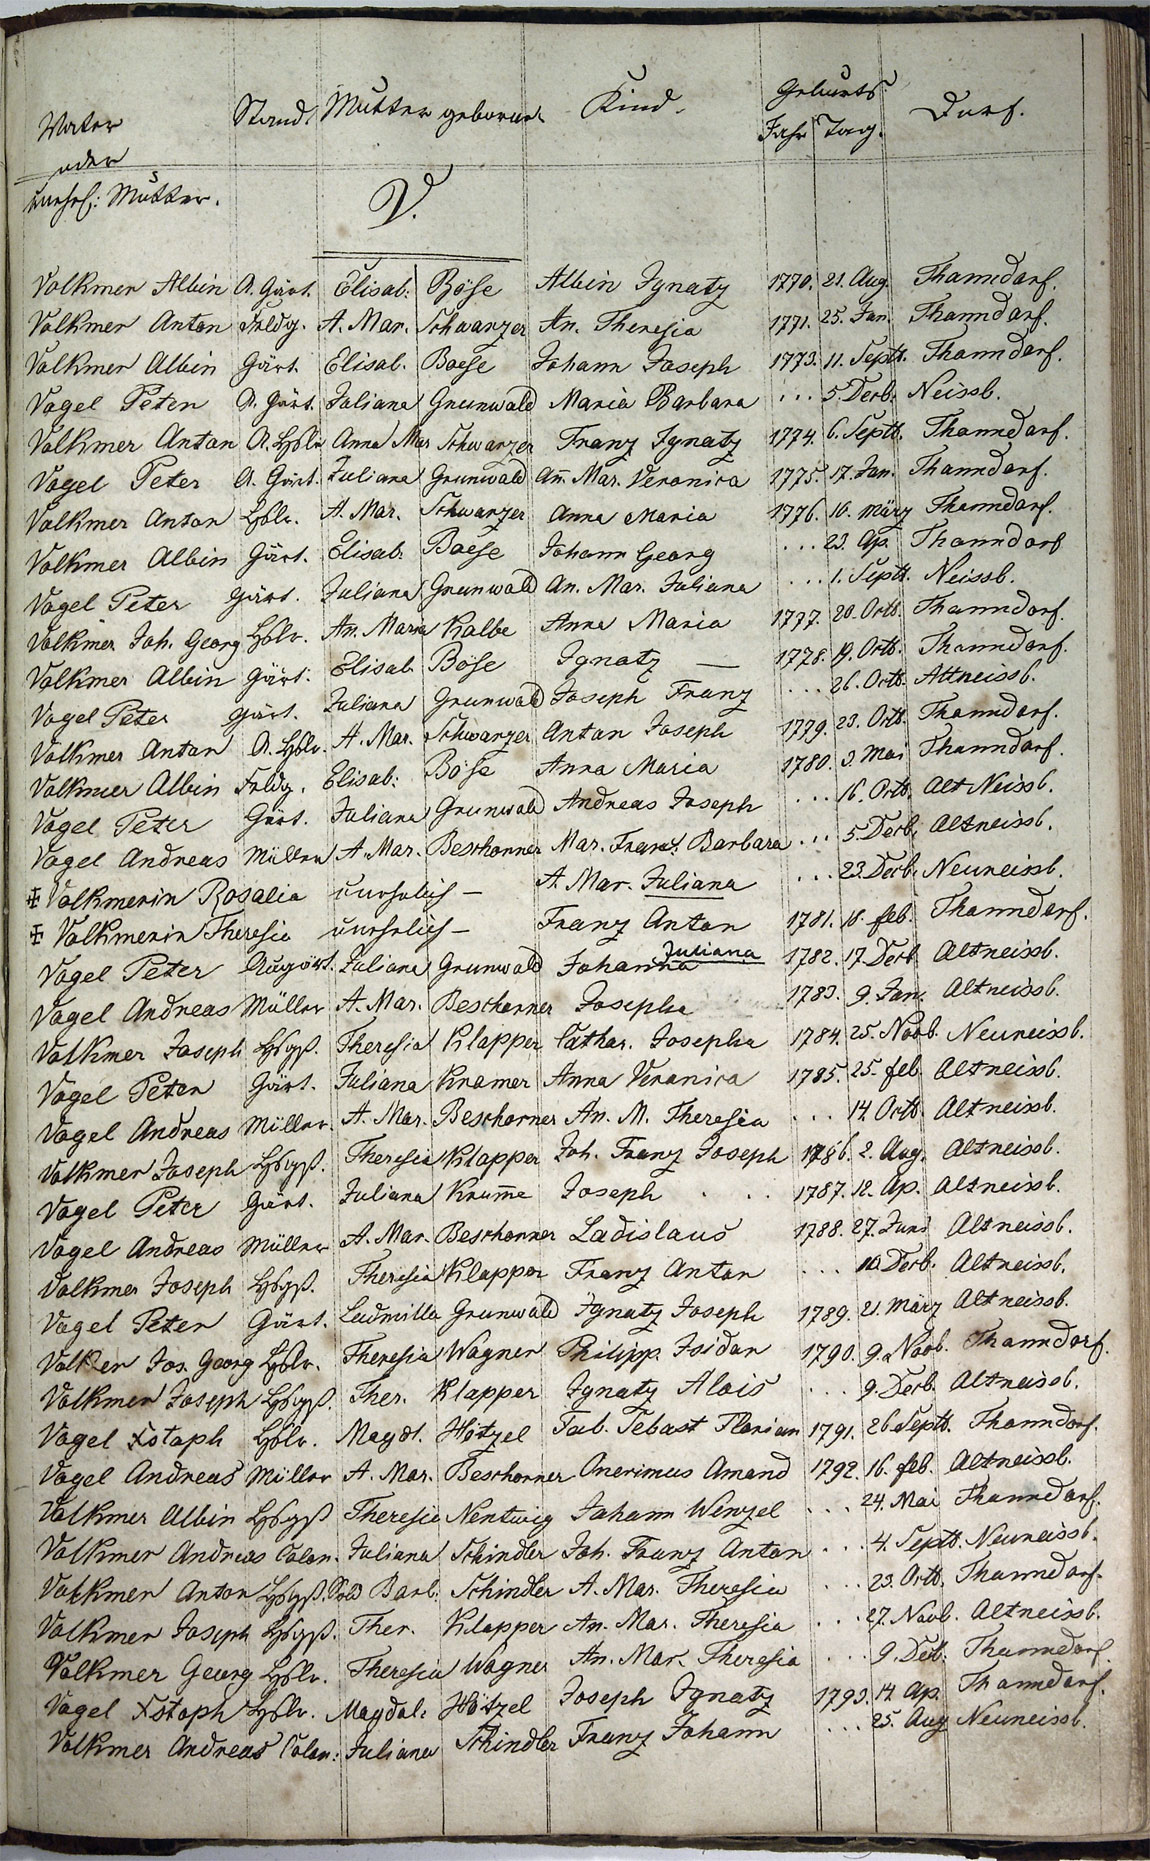 Vater Stand. Mutter geborne Kind. Geburts Dorf.
oder Jahr Tag.
unehel: Mutter.
V.
Volkmer Albin A. Gärt. Elisab: Böse Albin Ignatz 1770. 21. Aug. Thanndorf.
Volkmer Anton Feldg. A. Mar. Schwarzer An. Theresia 1771. 25. Jan. Thanndorf.
Volkmer Albin Gärt. Elisab. Boese Johann Joseph 1773. 11. Septb. Thanndorf.
Vogel Peter A. Gärt. Juliana Grunwald Maria Barbara ... 5. Decb. Neissb.
Volkmer Anton A. Hslr Anna Mar Schwarzer Franz Ignatz 1774. 6. Septb. Thanndorf.
Vogel Peter A. Gärt. Juliana Grunwald An̅. Mar. Veronica 1775. 17. Jan. Thanndorf.
Volkmer Anton Hslr. A. Mar. Schwarzer Anna Maria 1776. 16. märz Thanndorf.
Volkmer Albin Gärt. Elisab. Boese Johann Georg ... 23. Ap. Thanndorf
Vogel Peter Gärt. Juliana Grunwald An. Mar. Juliana ... 1. Septb. Neissb.
Volkmer Joh. Georg Hslr. An. Maria Kalbe Anna Maria 1777. 20. Octb. Thanndorf.
Volkmer Albin Gärt. Elisab. Böse Ignatz — 1778. 19. Octb. Thanndorf.
Vogel Peter Gärt. Juliana Grunwald Joseph Franz ... 26. Octb. Altneissb.
Volkmer Anton A. Hslr. A. Mar. Schwarzer Anton Joseph 1779. 23. Octb. Thanndorf.
Volkmer Albin Feldg. Elisab: Böse Anna Maria 1780. 3. Mai Thanndorf.
Vogel Peter Gärt. Juliana Grunwald Andreas Joseph ... 16. Octb. Alt Neissb.
Vogel Andreas Müller A. Mar. Beschorner Mar. Franz. Barbara ... 5. Decb. Altneissb.
✠ Volkmerin Rosalia unehelich — A. Mar. Juliana ... 23. Decb. Neuneissb.
✠ Volkmerin Theresia unehelich — Franz Anton 1781. 18. feb. Thanndorf.
Vogel Peter Augärt. Juliana Grunwald Johanna Juliana 1782. 17. Decb. Altneissb.
Vogel Andreas Müller A. Mar. Beschorner Josepha 1783. 9. Jan. Altneissb.
Volkmer Joseph Hsgß. Theresia Klapper Cathar. Josepha 1784. 25. Novb. Neuneissb.
Vogel Peter Gärt. Juliana Kramer Anna Veronica 1785. 25. feb. Altneissb.
Vogel Andreas Müller. A. Mar. Beschorner An. M. Theresia ... 14. Octb. Altneissb.
Volkmer Joseph Hsgß. Theresia Klapper Joh. Franz Joseph 1786. 2. Aug. Altneissb.
Vogel Peter Gärt. Juliana Krum̅e Joseph . . . 1787. 12. Ap. Altneissb.
Vogel Andreas Müller A. Mar. Beschorner Ladislaus 1788. 27. Juni Altneissb.
Volkmer Joseph Hsgß. Theresia Klapper Franz Anton ... 10. Decb. Altneissb.
Vogel Peter Gärt. Ludmilla Grunwald Ignatz Joseph 1789. 21. März Altneissb.
Volker Jos. Georg Hslr. Theresia Wagner Philipp Isidor 1790. 9. Novb. Thanndorf.
Volkmer Joseph Hsgß. Ther. Klapper Ignatz Alois ... 9. Decb. Altneissb.
Vogel Xstoph Hslr. Magdl. Hötzel Fab. Sebast Florian 1791. 26. Septb. Thanndorf.
Vogel Andreas Müller A. Mar. Beschorner Onerimus Amand 1792. 16. feb. Altneissb.
Volkmer Albin Hsgß Theresia Nentwig Johann Wenzel ... 24. Mai Thanndorf.
Volkmer Andreas Colon. Juliana Schindler Joh. Franz Anton ... 4. Septb. Neuneissb.
Volkmer Anton Hsgß. Barb. Schindler A. Mar. Theresia ... 23. Octb. Thanndorf.
Volkmer Joseph Hsgß. Ther. Klapper An. Mar. Theresia ... 27. Novb. Altneissb.
Volkmer Georg Hslr. Theresia Wagner An. Mar. Theresia ... 9. Decb. Thanndorf.
Vogel Xstoph Hslr. Magdal. Hötzel Joseph Ignatz 1793. 14. Ap. Thanndorf.
Volkmer Andreas Colon. Juliana Schindler Franz Johann ... 25. Aug Neuneissb.